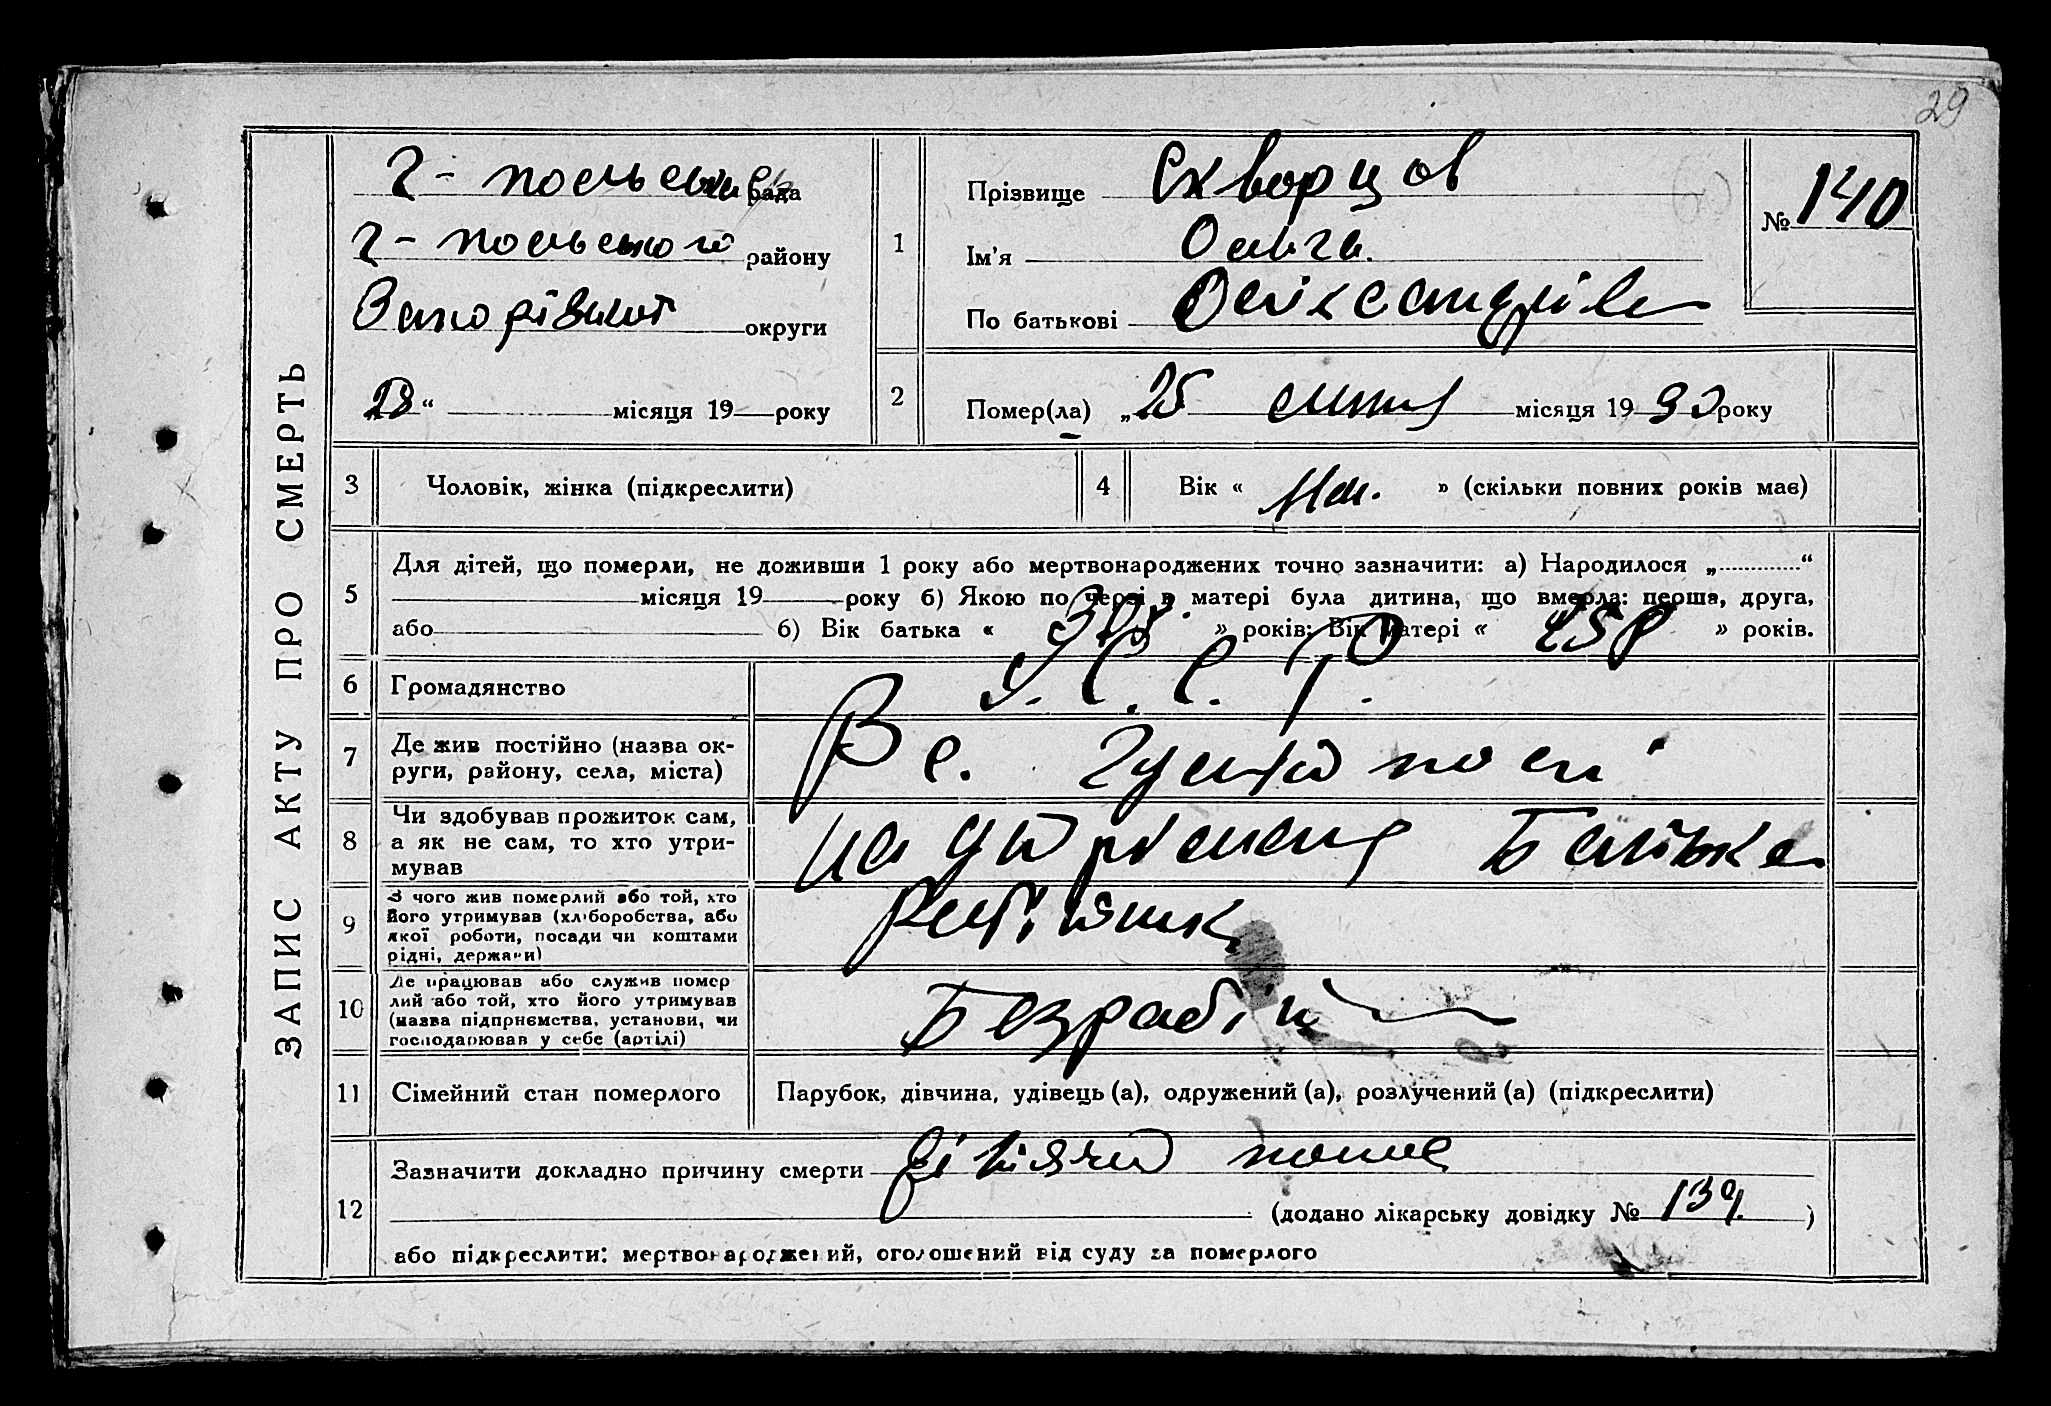 29
ЗАПИС АКТУ ПРО СМЕРТЬ
Г-польська рада
Г-польського району
Запорізької округи
28 “ місяця 19 року
1
Прізвище Скворцов
Ім'я Ольга
По батькові
№ 140
2
Помер(ла) „25 липня місяця 1930 року
3 Чоловік, жінка (підкреслити)
4 Вік « » (скільки повних років має)
5
Для дітей, що померли, не доживши 1 року або мертвонароджених точно зазначити: а) Народилося „ “
місяця 19 року б) Якою по черзі в матері була дитина, що вмерла: перша, друга,
або б) Вік батька « » років; Вік матері « » років.
6 Громадянство У.С.С.Р.
7
Де жив постійно (назва ок-
руги, району, села, міста)
В с. Гуляйполі
8
Чи здобував прожиток сам,
а як не сам, то хто утри-
мував
на утриманні Батька
9
З чого жив померлий або той, хто
його утримував (хліборобства, або
якої роботи, посади чи коштами
рідні, держави)
10
Де працював або служив помер
лий або той, хто його утримував
(назва підприємства, установи, чи
господарював у себе (артілі)
Безробітн
11 Сімейний стан померлого
Парубок, дівчина, удівець (а), одружений (а), розлучений (а) (підкреслити)
12
Зазначити докладно причину смерти Дітячий понос
(додано лікарську довідку № 139 )
або підкреслити: мертвонароджений, оголошений від суду за померлого